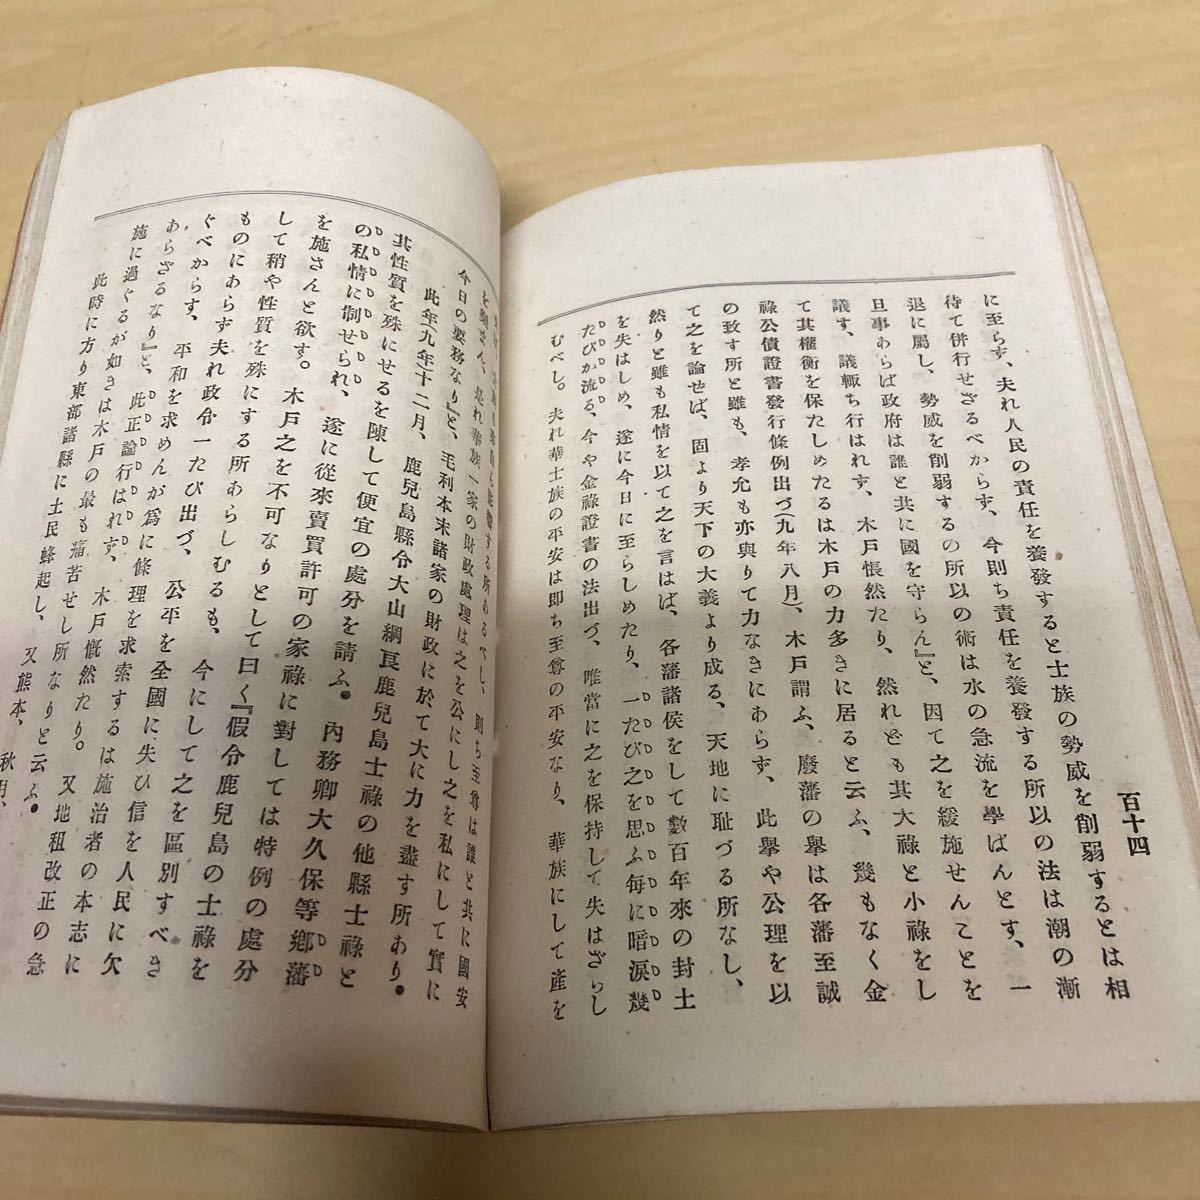 百十四
に至らず、夫れ人民の責任を養發すると士族の勢威を削弱するとは相
待て併行せざるべからず、今則ち責任を養發する所以の法は潮の漸
退に屬し、勢威を削弱するの所以の術は水の急流を學ばんとす、一
旦事あらば政府は誰と共に國を守らん』と、因て之を緩施せんことを
議す、議輙ち行はれず、木戸悵然たり、然れども其大祿と小祿をし
て其權衡を保たしめたるは木戸の力多きに居ると云ふ、幾もなく金
祿公債證書發行條例出づ(九年八月)、木戸謂ふ、廢藩の擧は各藩至誠
の致す所と雖も、孝允も亦與りて力なきにあらず、此擧や公理を以
て之を論せば、固より天下の大義より成る、天地に耻づる所なし、
然りと雖も私情を以て之を言はば、各藩諸侯をして數百年來の封土
を失はしめ、遂に今日に至らしめたり、一たび之を思ふ毎に暗涙幾
たびか流る、今や金祿證書の法出づ、唯當に之を保持して失はざらし
むべし。夫れ華士族の平安は即ち至尊の平安なり、華族にして産を
する所あるべし、則ち至尊は誰と共に國安
を師さん、是れ華族一家の財政處理は之を公にし之を私にして實に
今日の要務なり』と、毛利本末諸家の財政に於て大に力を盡す所あり。
此年九年十二月、鹿兒島縣令大山綱良鹿兒島士祿の他縣士祿と
其性質を殊にせるを陳して便宜の處分を請ふ。内務卿大久保等鄕藩
の私情に制せられ、遂に從來賣買許可の家祿に對しては特例の處分
を施さんと欲す。木戸之を不可なりとして曰く『假令鹿兒島の士祿を
して稍や性質を殊にする所あらしむるも、今にして之を區別すべき
ものにあらず夫れ政令一たび出づ、公平を全國に失ひ信を人民に欠
ぐべからず、平和を求めんが爲に條理を求索するは施治者の本志に
あらざるなり』と、此正論行はれず、木戸慨然たり。又地租改正の急
施に過ぐるが如きは木戸の最も痛苦せし所なりと云ふ。
此時に方り東部諸縣に土民蜂起し、又熊本、秋月、